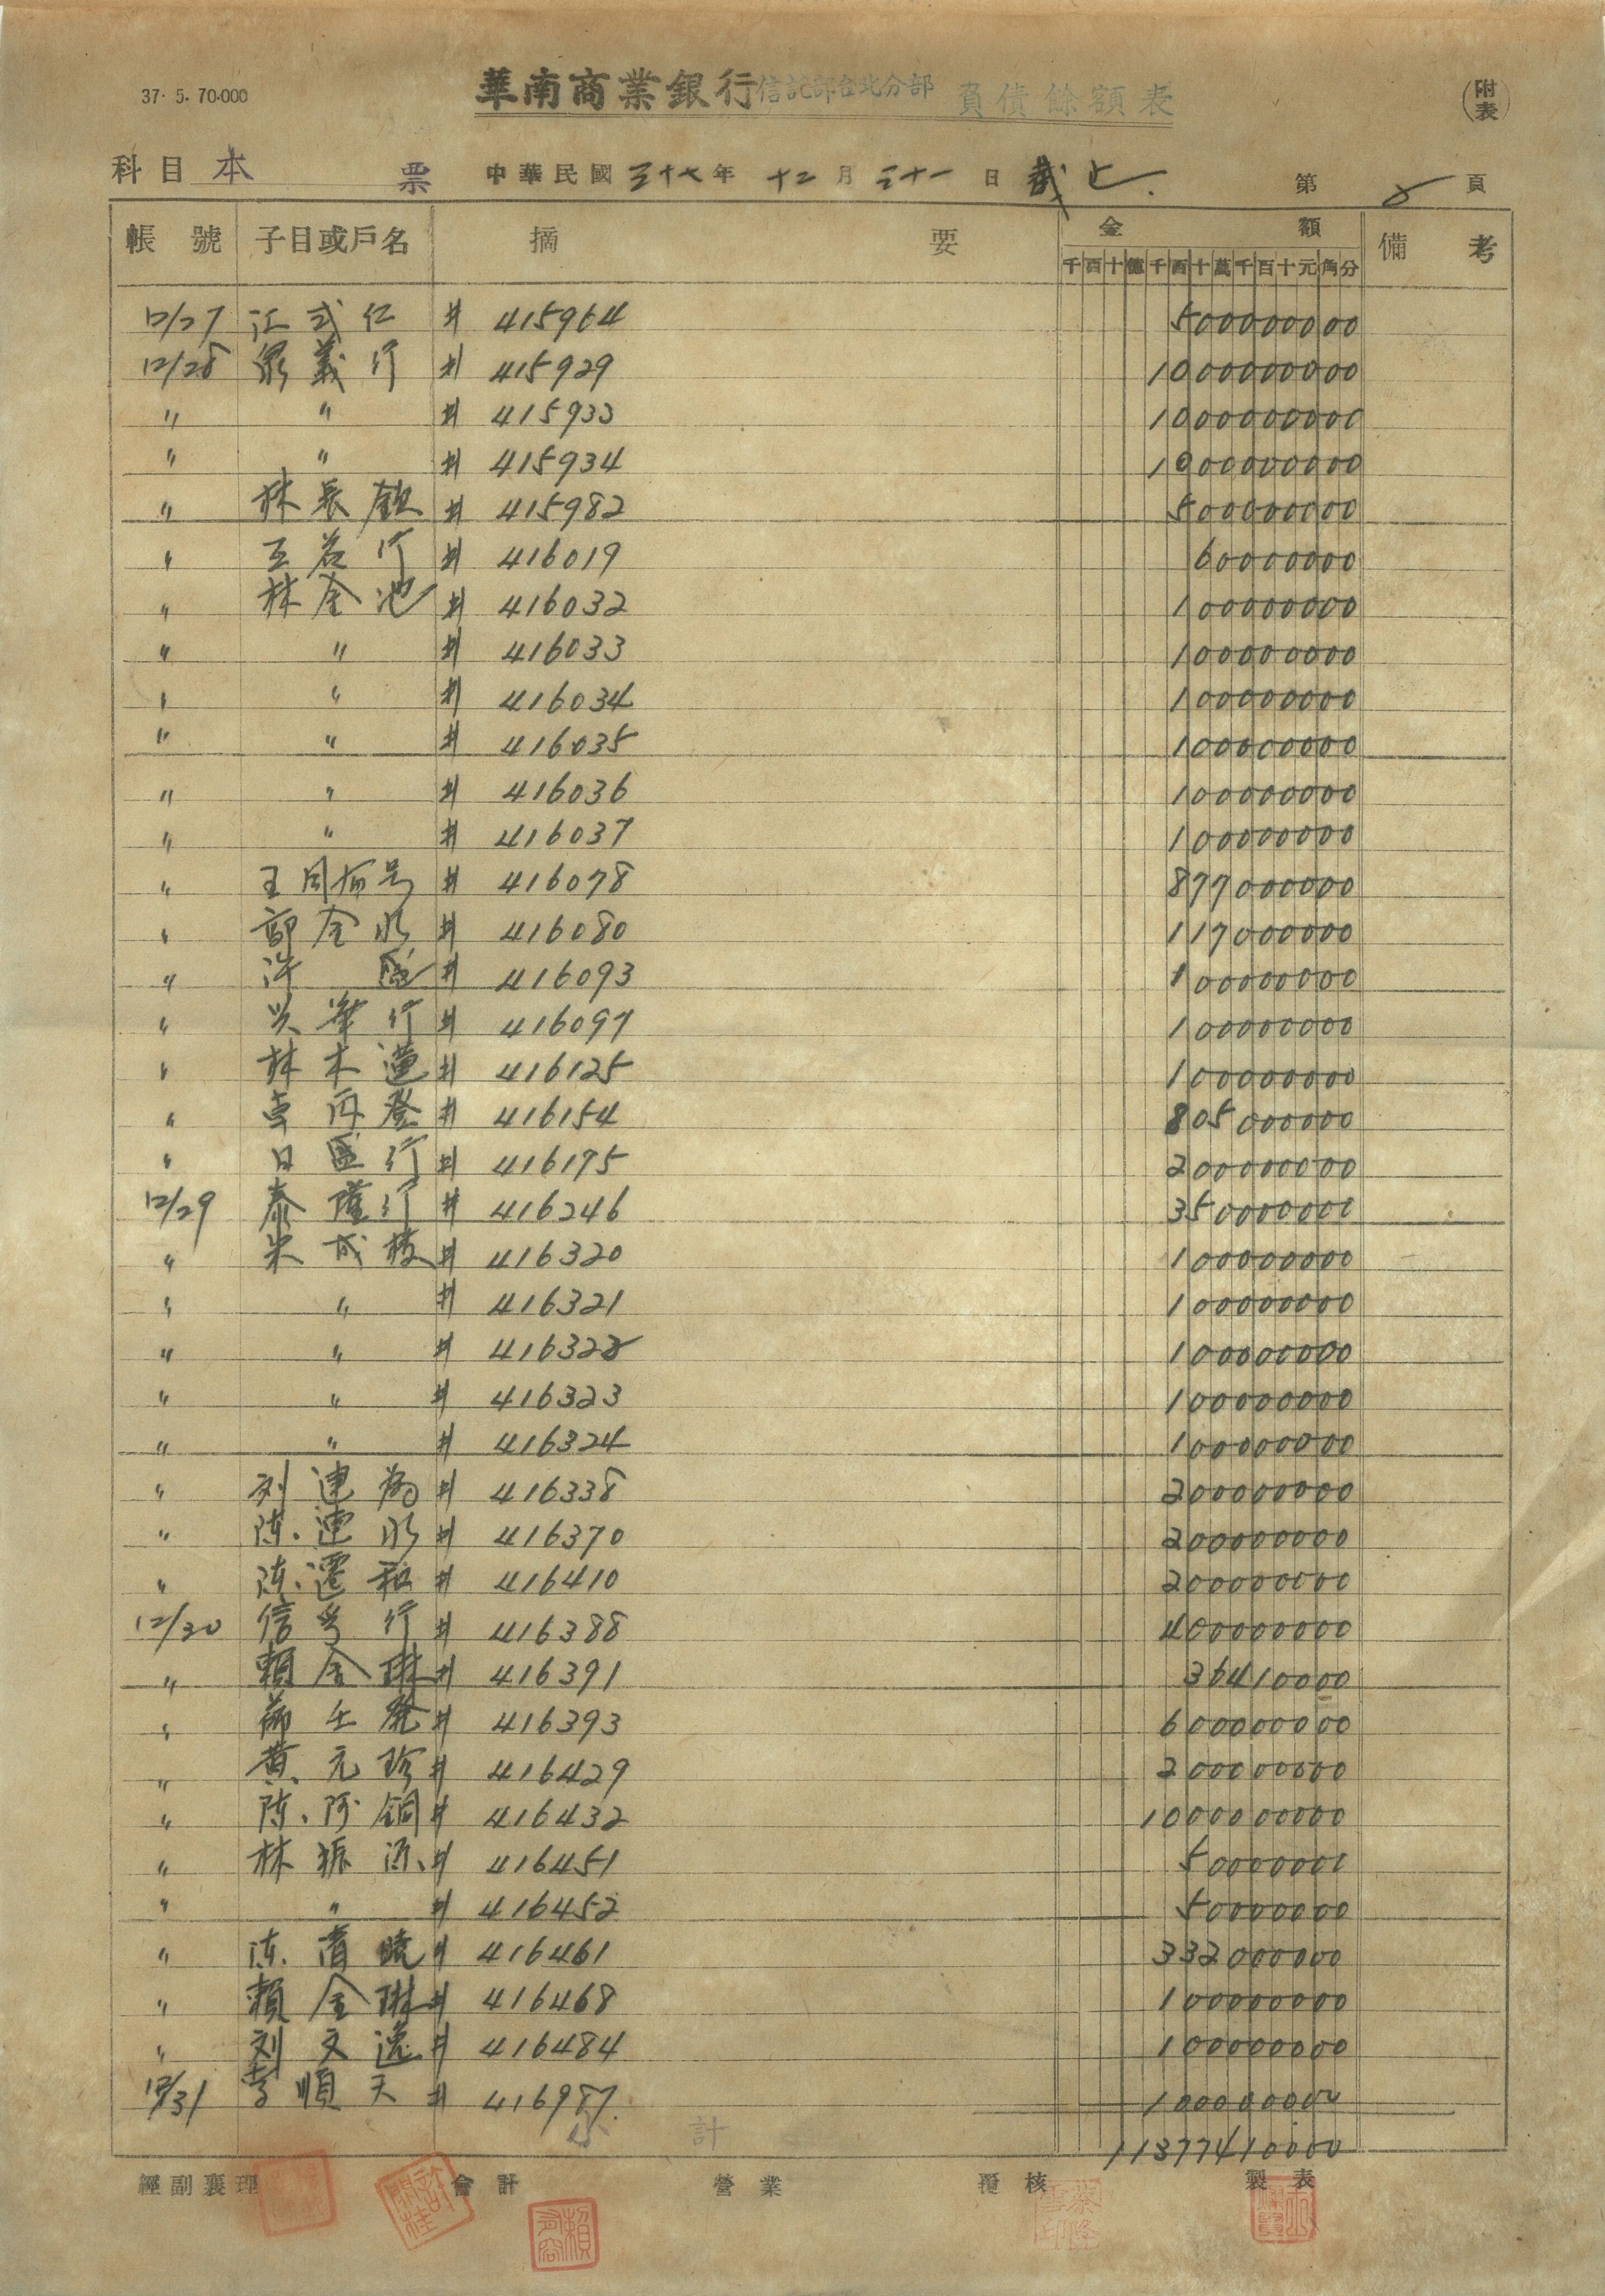 37. 5. 70.000
華南商業銀行信託部台北分部 負債餘額表
(附表)
科目 本 票 中華民國三十七年 十二月 三十一日 截止. 第 8 頁
帳號 子目或戶名 摘要 金額 備考
千百十億千百十萬千百十元角分
12/27 江式仁 # 415964 500000000
12/28 鼎義行 # 415929 1000000000
〃 〃 # 415933 1000000000
〃 〃 # 415934 1000000000
〃 林長欽 # 415982 500000000
〃 互益行 # 416019 60000000
〃 林金池 # 416032 100000000
〃 〃 # 416033 100000000
〃 〃 # 416034 100000000
〃 〃 # 416035 100000000
〃 〃 # 416036 100000000
〃 〃 # 416037 100000000
〃 王同 号 # 416078 877000000
〃 鄧金水 # 416080 117000000
〃 許 盛 # 416093 100000000
〃 興華行 # 416097 100000000
〃 林木蓮 # 416125 100000000
〃 再登 # 416154 805000000
〃 日盛行 # 416195 200000000
12/29 泰隆行 # 416246 350000000
〃 朱成枝 # 416320 100000000
〃 〃 # 416321 100000000
〃 〃 # 416322 100000000
〃 〃 # 416323 100000000
〃 〃 # 416324 100000000
〃 刘連 # 416338 200000000
〃 陳連水 # 416370 200000000
〃 陳還和 # 416410 200000000
12/30 信 行 # 416388 400000000
〃 賴金琳 # 416391 36410000
〃 發 # 416393 600000000
〃 黃元珍 # 416429 200000000
〃 陳阿銅 # 416432 1000000000
〃 林振源 # 416451 50000000
〃 〃 # 416452 50000000
〃 陳 曉 # 416461 332000000
〃 賴金琳 # 416468 100000000
〃 刘文逸 # 416484 100000000
12/31 李順天 # 416987 100000000
小計 11377410000
經副襄理 會計 營業 覆核 製表